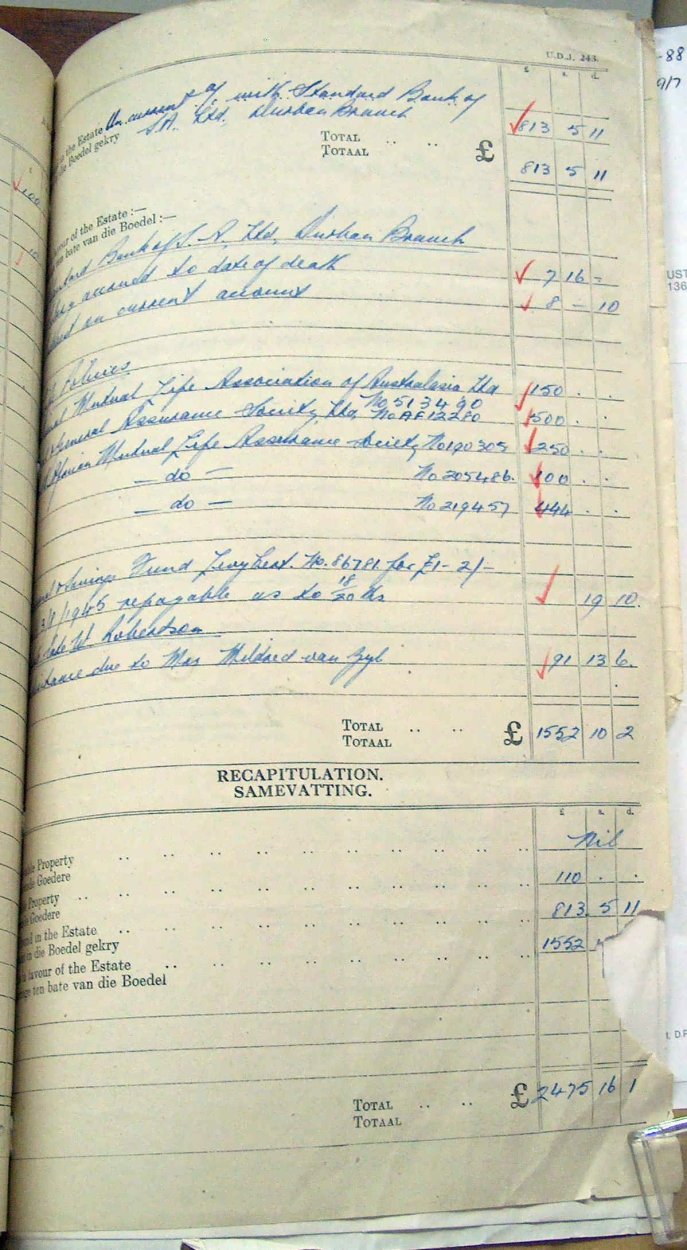 U.D.J. 243.
-88
9/7
£ s. d.
in the Estate On current a/c with Standard Bank of
die Boedel gekry SA. Ltd. Durban Branch 813 5 11
TOTAL .. ..
TOTAAL £ 813 5 11
100
10
favour of the Estate :—
ten bate van die Boedel :—
Bank of S. A. Ltd. Durban Branch
accrued to date of death 7 16 -
on current account 8 - 10
Policies
Mutual Life Association of Australasia Ltd No 513490 150 . .
General Assurance Society Ltd, No AF12280 500 . .
Mutual Life Assurance Society No 190305 250 . .
— do — No 205486. 100 . .
— do — No 219457 444 . .
& Savings Fund Levy Cert. No. 86781 for £1-2/-
/8/1945 repayable as to 18/20ths 19 10.
late W Robertson
due to Mrs Mildred van Zyl 91 13 6.
TOTAL .. ..
TOTAAL £ 1552 10 2
RECAPITULATION.
SAMEVATTING.
£ s. d.
Property Nil
Goedere
Property 110 . .
Goedere
in the Estate 813 5 11
in die Boedel gekry
favour of the Estate 1552
ten bate van die Boedel
TOTAL .. ..
TOTAAL £ 2475 16 1
UST
136
D.P